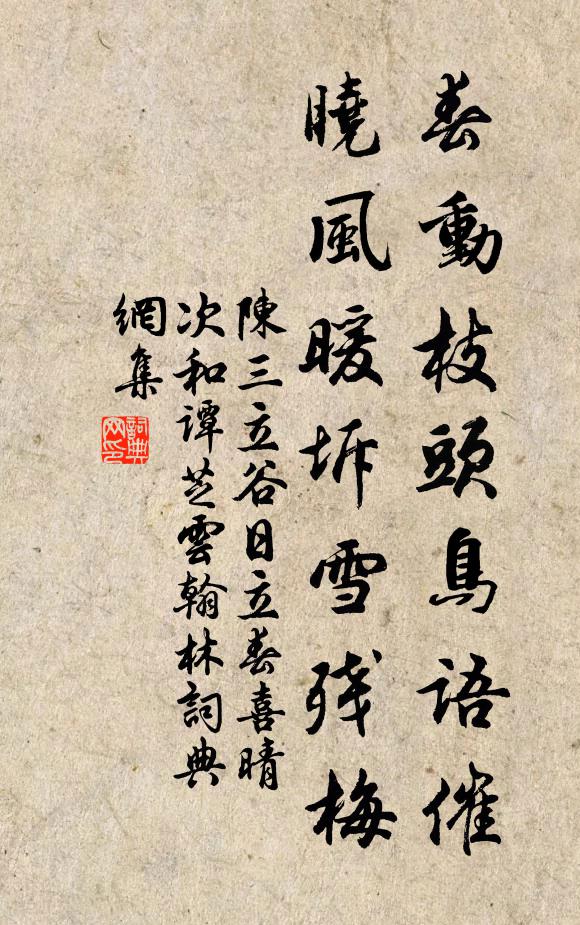 春動枝頭鳥語催
曉風暖坼雪殘梅
陳三立谷日立春喜晴
次和譚芝雲翰林詞典
網集
詞典
网印